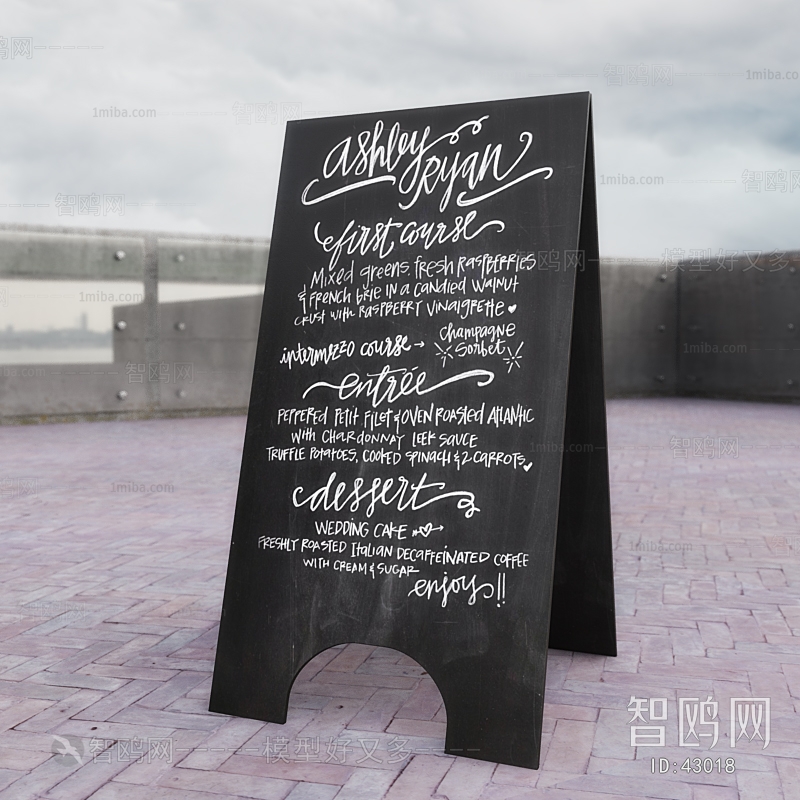 ashley
Ryan
first course
Mixed greens, fresh RaspBeRRies
& French brie in a candied walnut
crust with Raspberry Vinaigrette
intermezzo course → Champagne
Sorbet
entrée
Peppered Petit Filet & Oven Roasted Atlantic
with Chardonnay Leek Sauce
Truffle Potatoes, Cooked Spinach & 2 Carrots
dessert
Wedding Cake
Freshly Roasted Italian Decaffeinated Coffee
with Cream & Sugar
enjoy!!
智鸥网
ID:43018
1miba.com
智鸥网
模型好又多